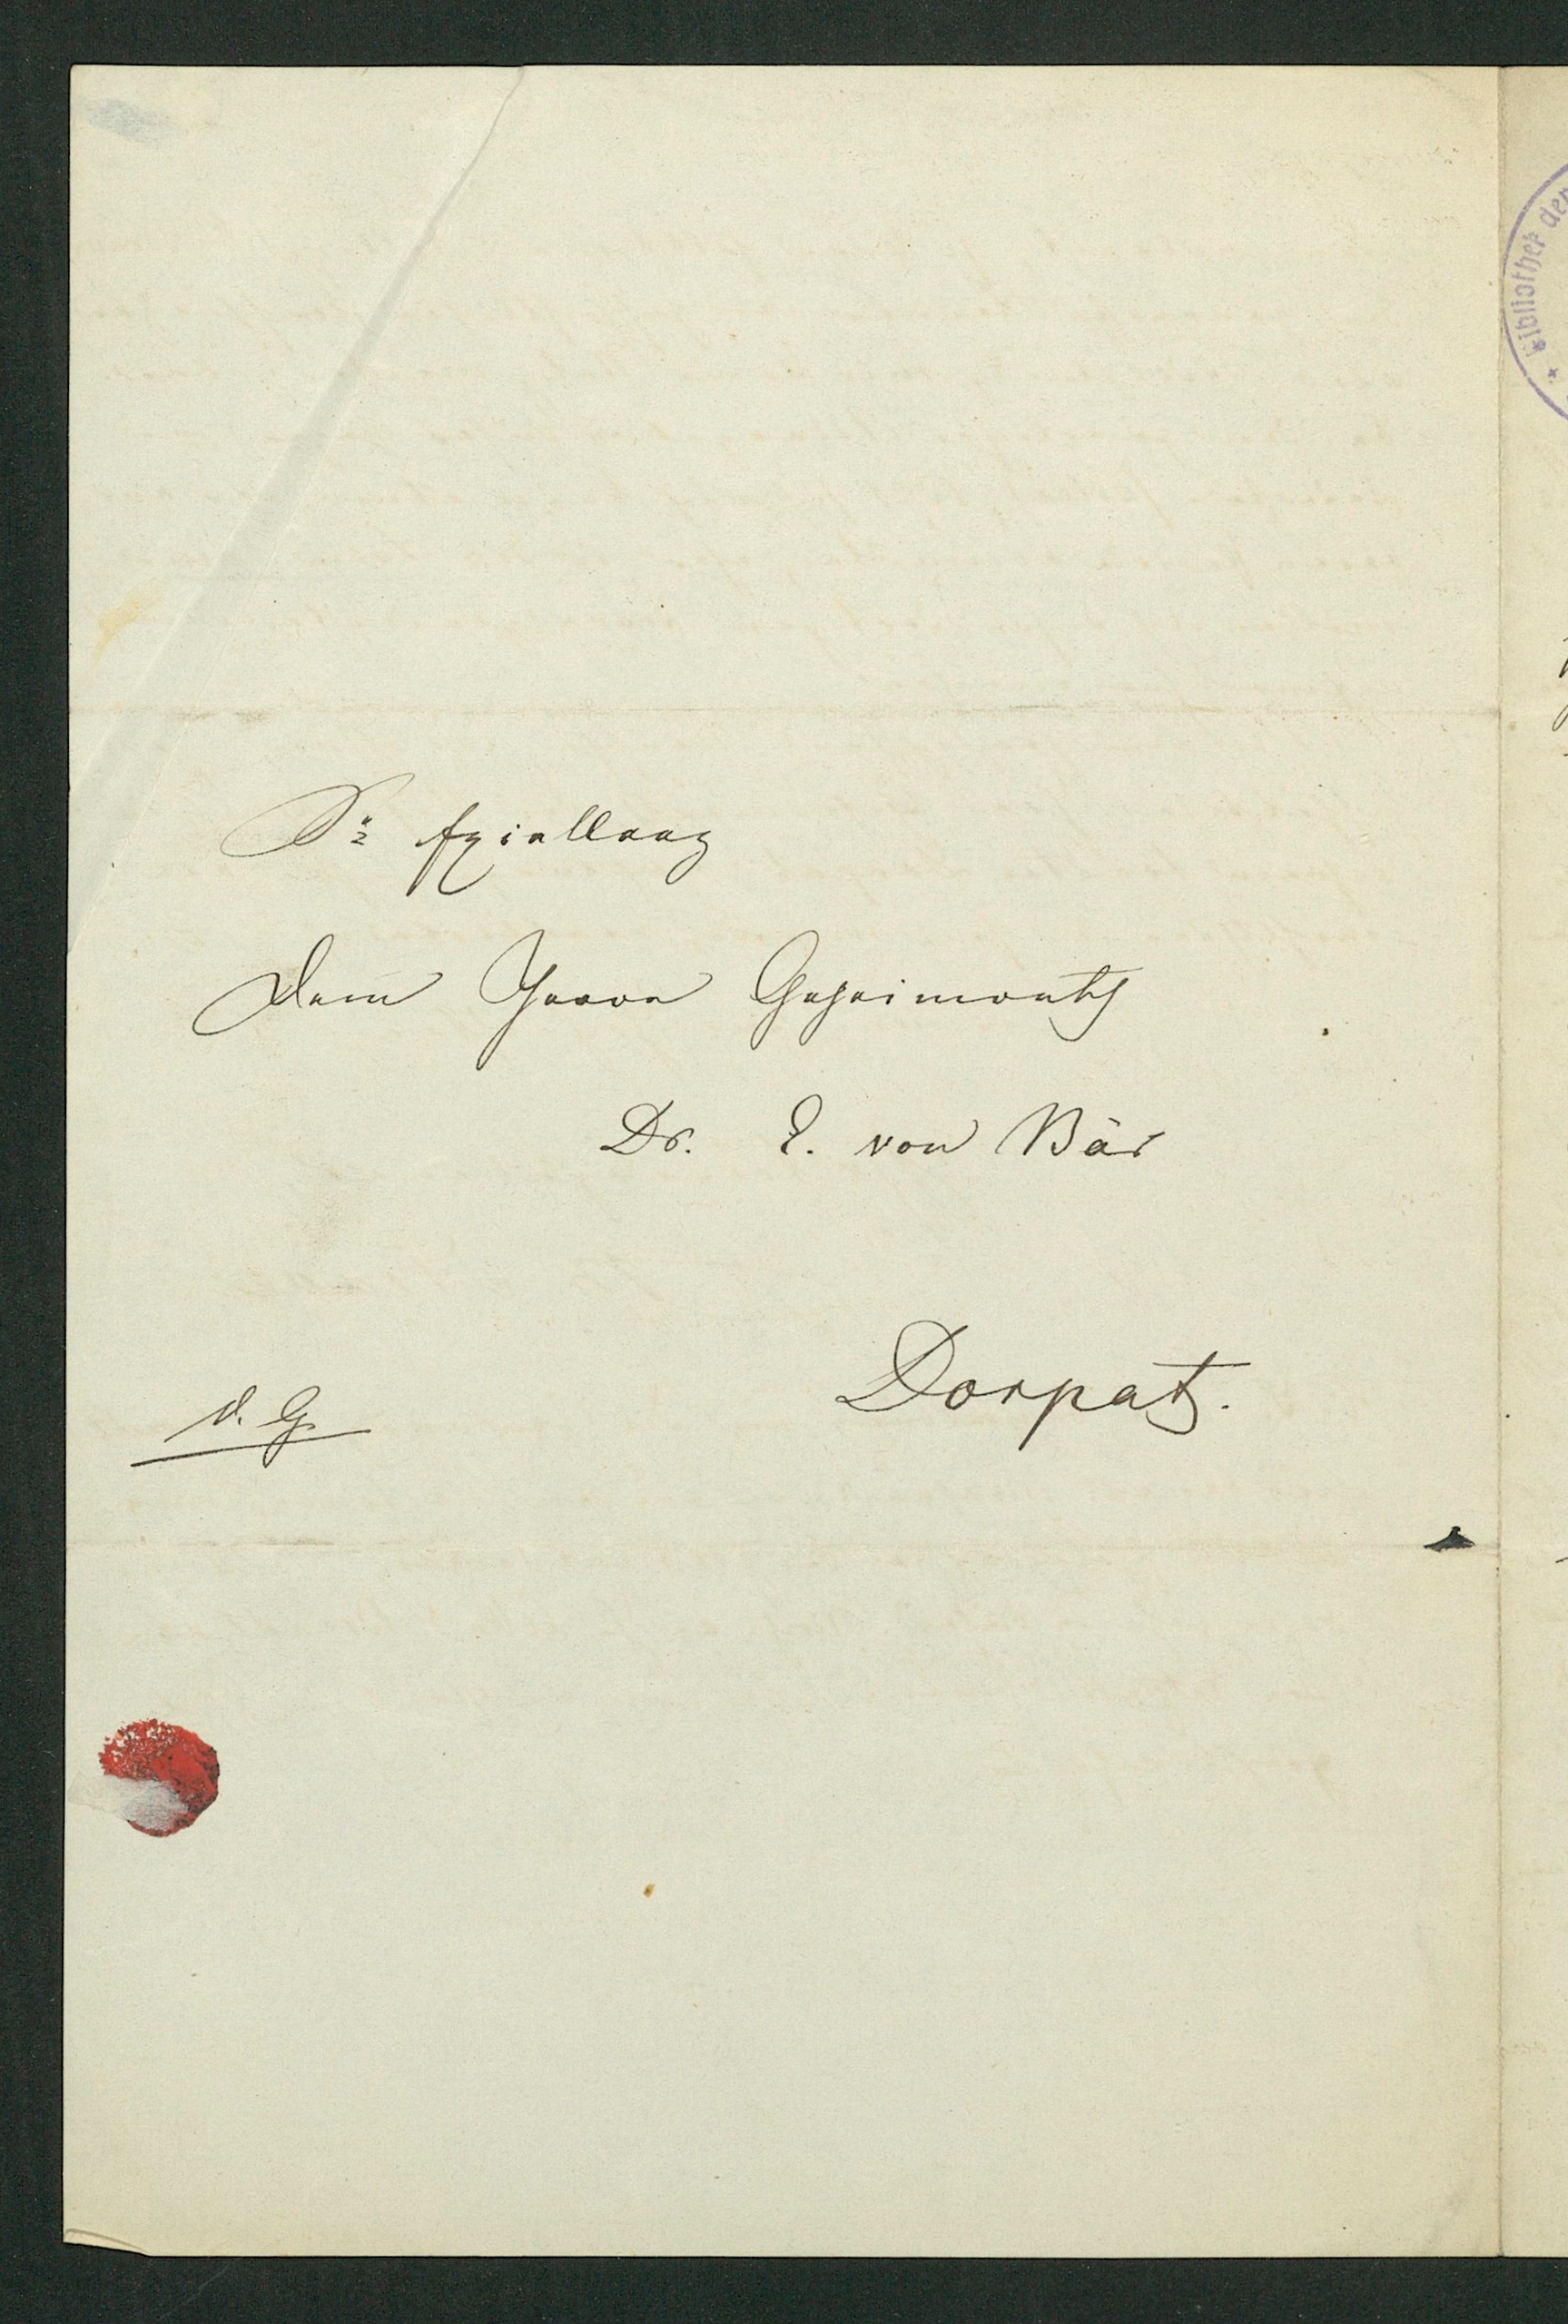 Sr Excellenz
Dem Herrn Geheimrath
Dr. E. von Bär
Dorpat.
d. G.
* Bibliothek der